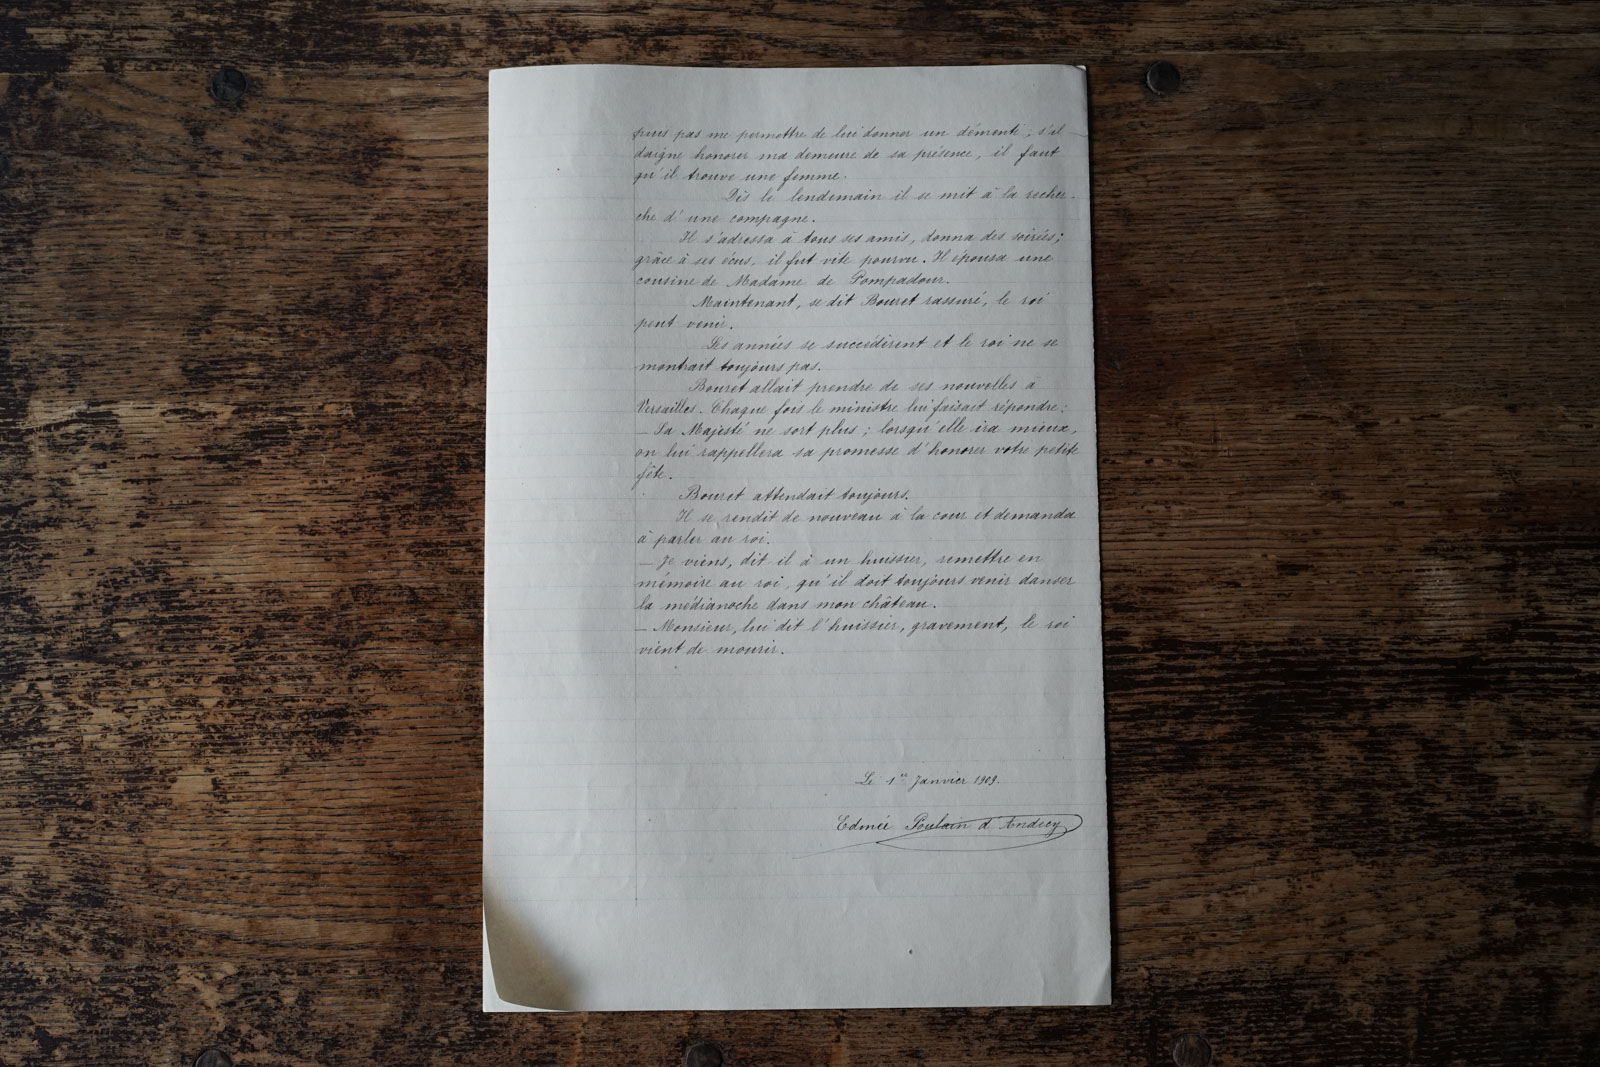 puis pas me permettre de lui donner un démenti ; s'il
daigne honorer ma demeure de sa présence, il faut
qu'il trouve une femme.
Dès le lendemain il se mit à la recher-
che d'une compagne.
Il s'adressa à tous ses amis, donna des soirées ;
grâce à ses écus, il fut vite pourvu. Il épousa une
cousine de Madame de Pompadour.
Maintenant, se dit Bouret rassuré, le roi
peut venir.
Les années se succédèrent et le roi ne se
montrait toujours pas.
Bouret allait prendre de ses nouvelles à
Versailles. Chaque fois le ministre lui faisait répondre :
– Sa Majesté ne sort plus ; lorsqu'elle ira mieux,
on lui rappellera sa promesse d'honorer votre petite
fête.
Bouret attendait toujours.
Il se rendit de nouveau à la cour et demanda
à parler au roi.
– Je viens, dit il à un huissier, remettre en
mémoire au roi, qu'il doit toujours venir danser
la médianoche dans mon château.
– Monsieur, lui dit l'huissier, gravement, le roi
vient de mourir.
Le 1er Janvier 1909.
Edmée Poulain d'Andecy